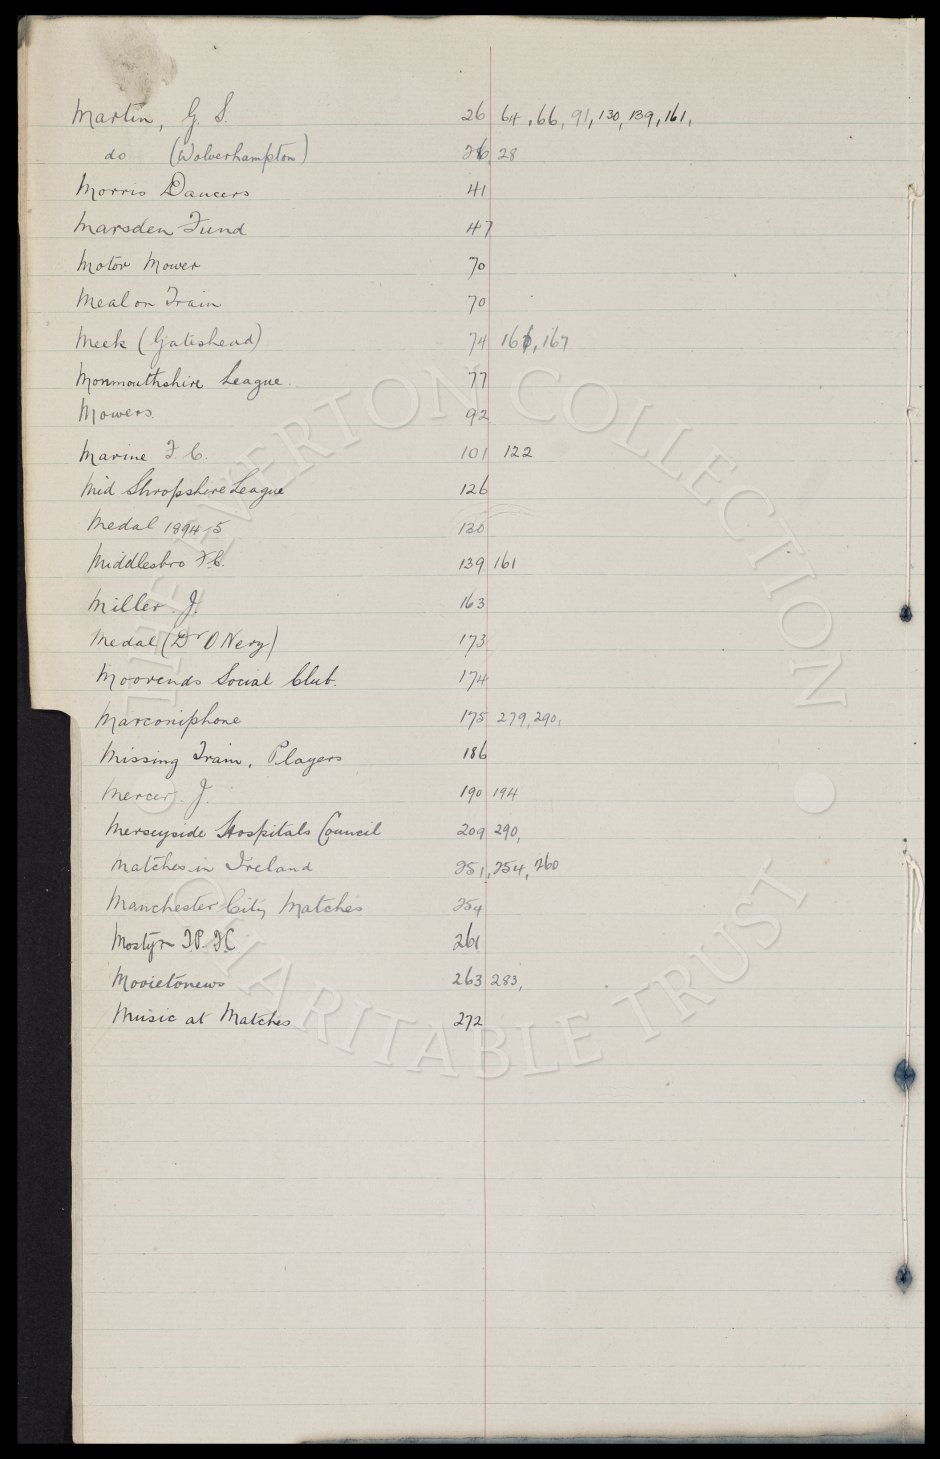 Martin, G. S. 26 64, 66, 91, 130, 139, 161,
do (Wolverhampton) 26 28
Morris Dancers 41
Marsden Fund 47
Motor Mower 70
Meal on Train 70
Meek (Gateshead) 74 161, 167
Monmouthshire League. 77
Mowers. 92
Marine F. C. 101 122
Mid Shropshire League 126
Medal 1894-5 130
Middlesbro F.C. 139 161
Miller. J. 163
Medal (Dr O'Nery) 173
Moorends Social Club. 174
Marconiphone 175 279, 290,
Missing Train, Players 186
Mercer. J. 190 194
Merseyside Hospitals Council 209 290,
Matches in Ireland 251, 254, 260
Manchester City Matches 254
Mostyn F.C. 261
Movietonews 263 283,
Music at Matches 272
THE EVERTON COLLECTION
CHARITABLE TRUST